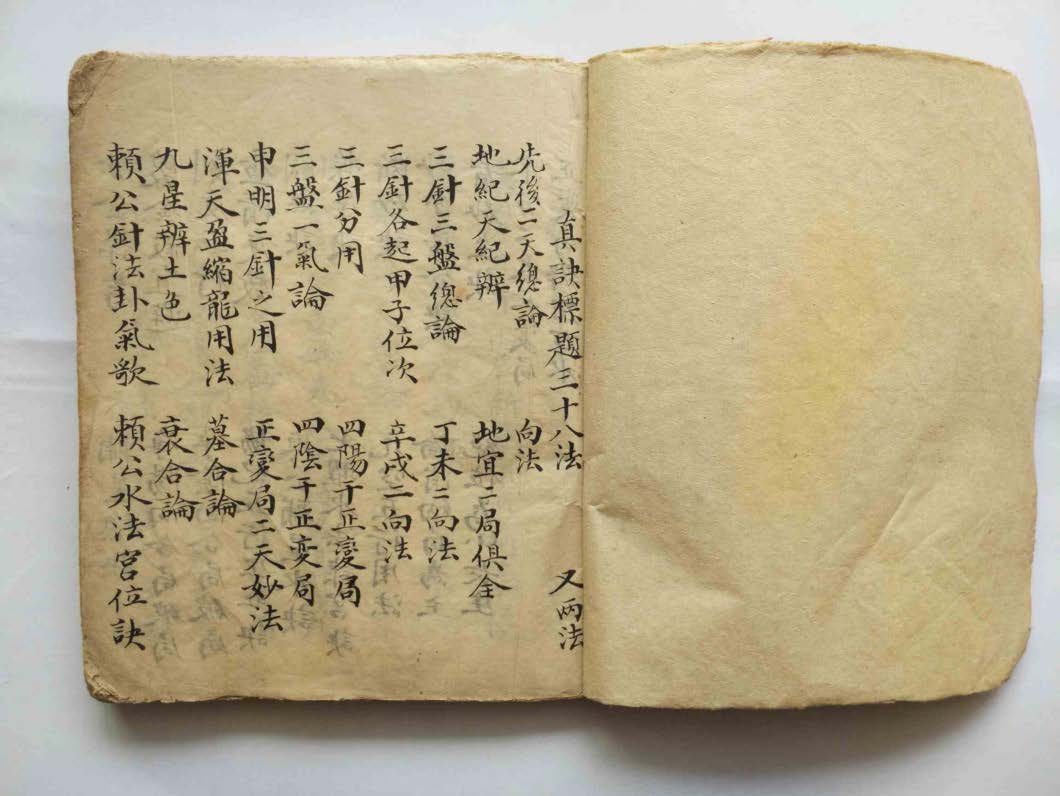 真訣標題三十八法 又兩法
先後二天總論 向法
地紀天紀辨 地宜二局俱全
三針三盤總論 丁未二向法
三針各起甲子位次 辛戌二向法
三針分用 四陽干正變局
三盤一氣論 四陰干正変局
申明三針之用 正變局二天妙法
渾天盈縮龍用法 墓合論
九星辨土色 衰合論
賴公針法卦氣歌 賴公水法宮位訣